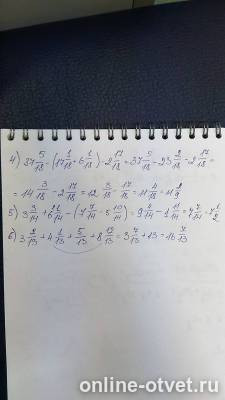 4) 37 5/18 - (17 1/18 + 6 1/18) - 2 17/18 = 37 5/18 - 23 2/18 - 2 17/18 =
= 14 3/18 - 2 17/18 = 12 3/18 - 17/18 = 11 4/18 = 11 2/9
5) 3 3/14 + 6 - (7 - 5 10/14) = 9 - 1 11/14 = 7 1/2
6) 3 2/13 + 4 1/13 + 5/13 + 8 12/13 = 3 7/13 + 13 = 16 7/13
online-otvet.ru